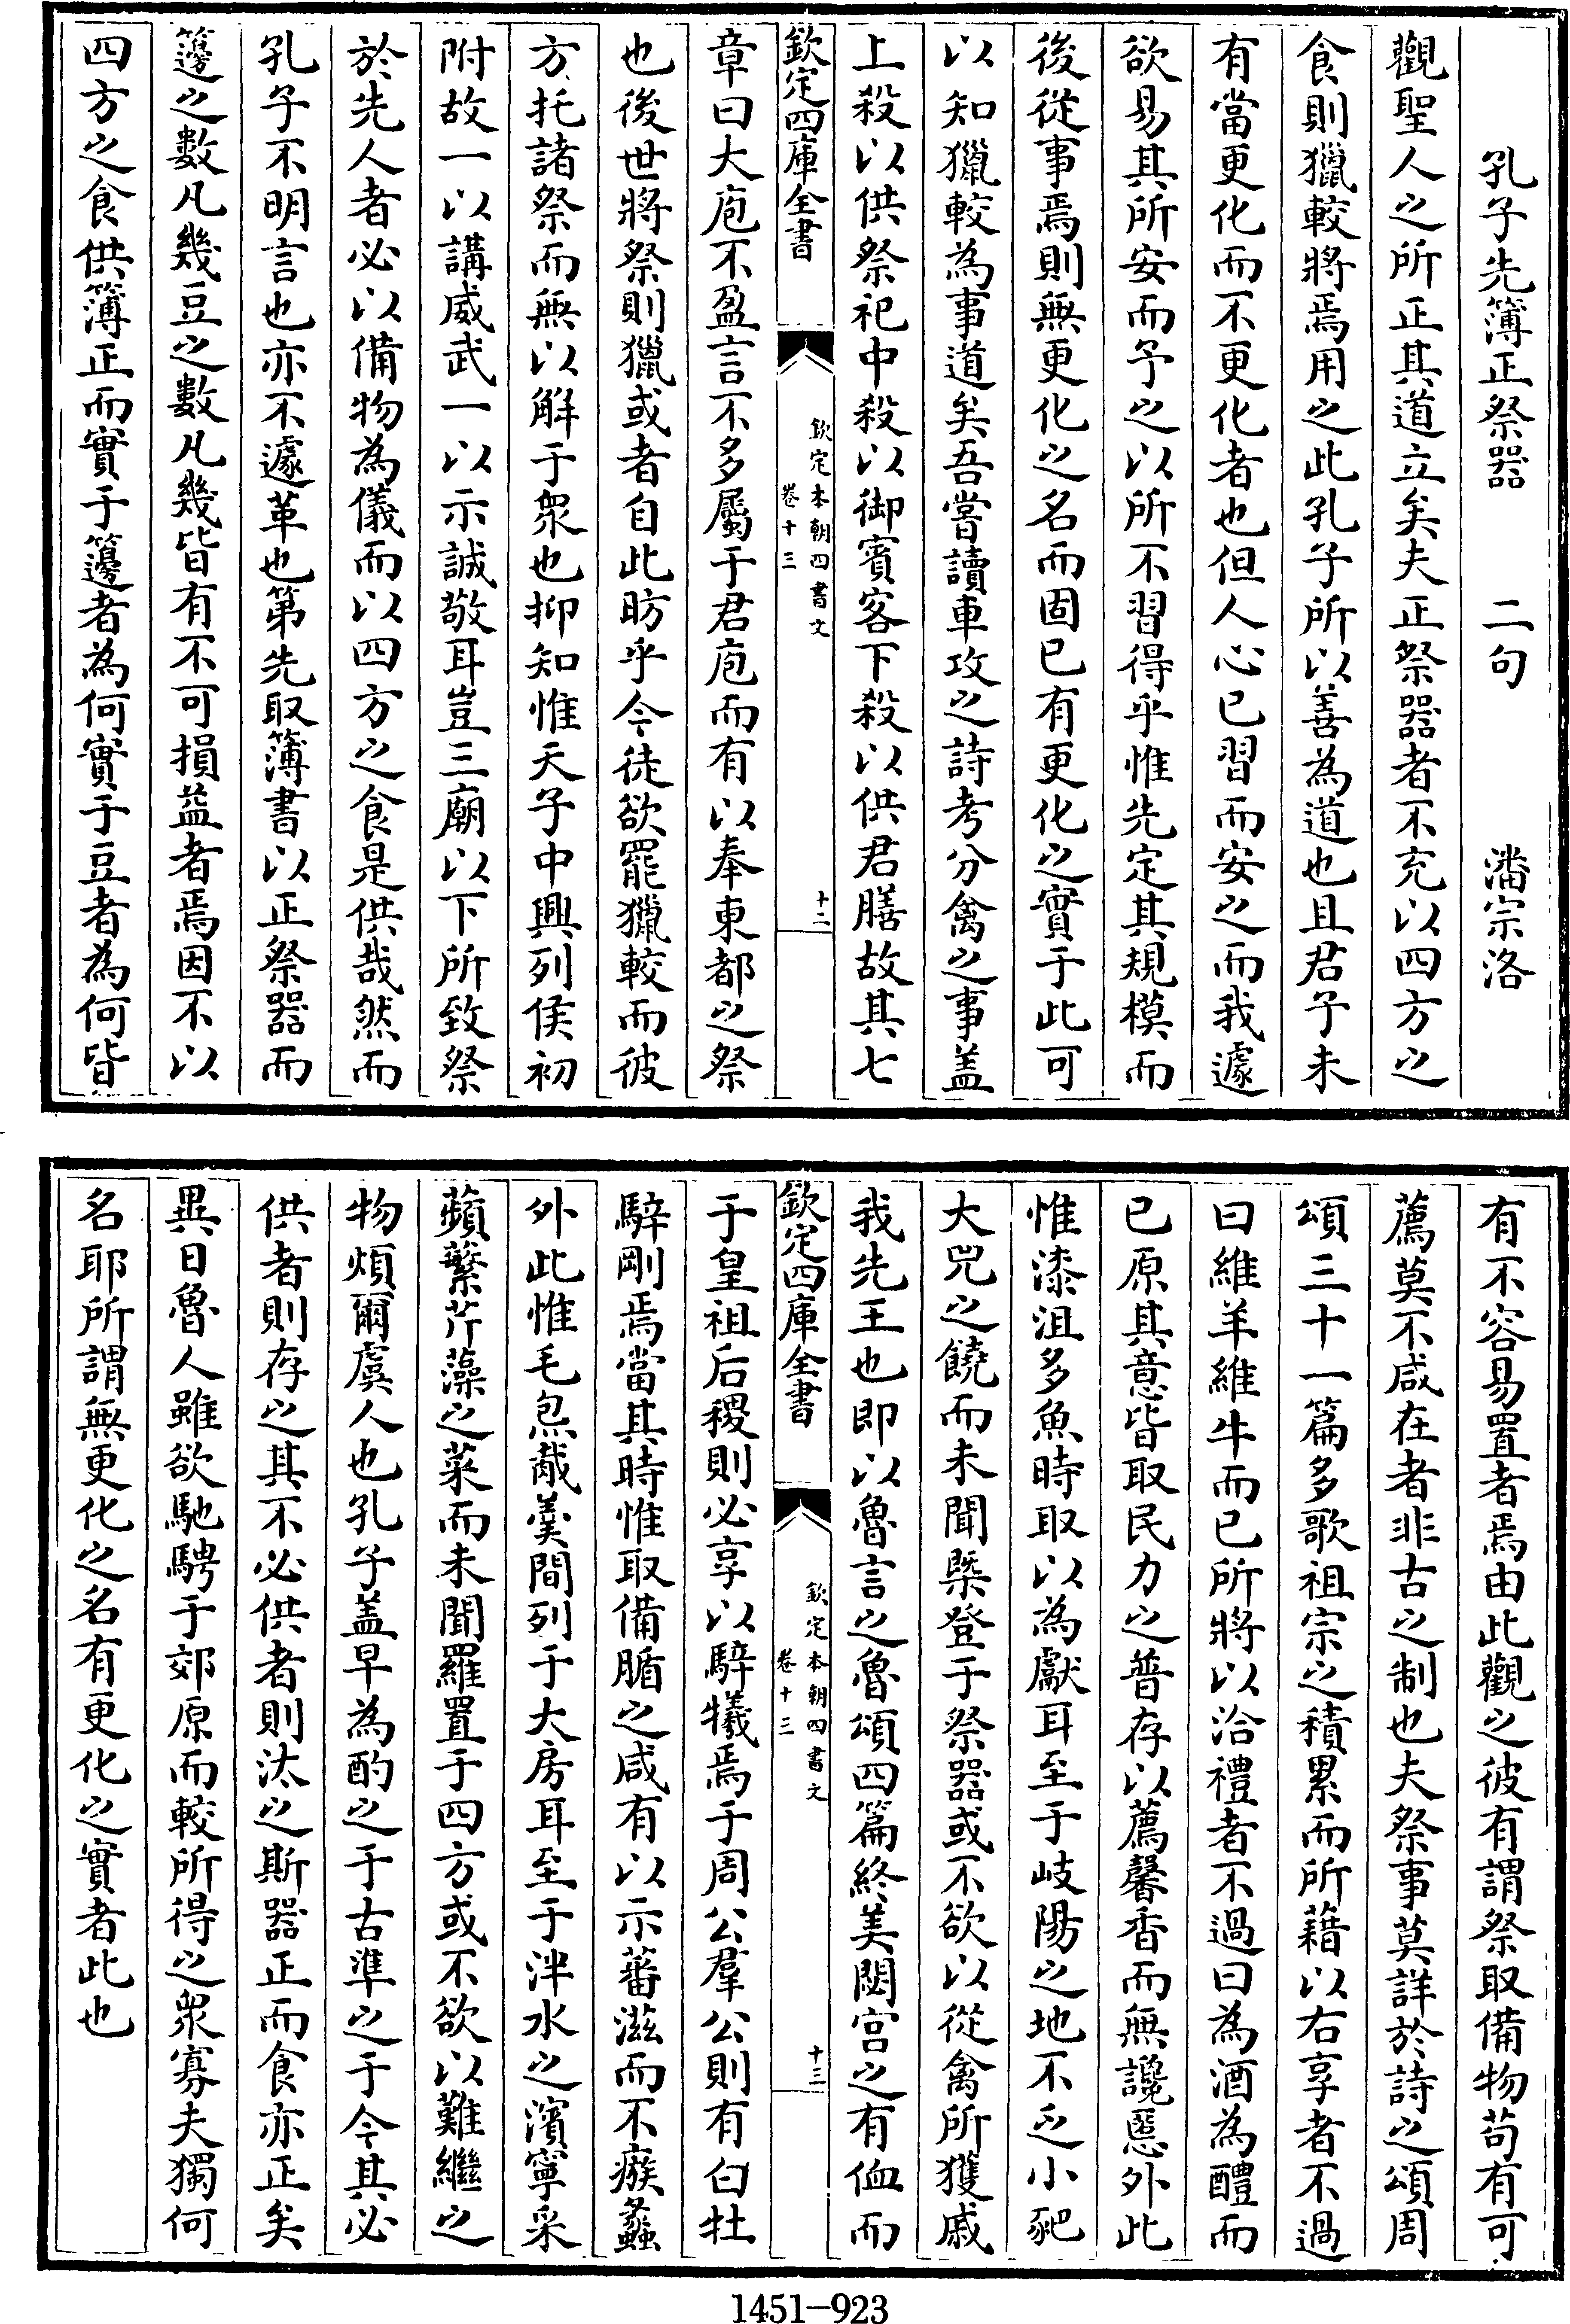 孔子先簿正祭器　二句　潘宗洛
觀聖人之所正其道立矣夫正祭器者不充以四方之
食則獵較將焉用之此孔子所以善為道也且君子未
有當更化而不更化者也但人心已習而安之而我遽
欲易其所安而予之以所不習得乎惟先定其規模而
後從事焉則無更化之名而固已有更化之實于此可
以知獵較為事道矣吾嘗讀車攻之詩考分禽之事盖
上殺以供祭祀中殺以御賓客下殺以供君膳故其七
欽定四庫全書
欽定本朝四書文
卷十三
十二
章曰大庖不盈言不多屬于君庖而有以奉東都之祭
也後世將祭則獵或者自此昉乎今徒欲罷獵較而彼
方托諸祭而無以解于衆也抑知惟天子中興列侯初
附故一以講威武一以示誠敬耳豈三廟以下所致祭
於先人者必以備物為儀而以四方之食是供哉然而
孔子不明言也亦不遽革也第先取簿書以正祭器而
籩之數凡幾豆之數凡幾皆有不可損益者焉因不以
四方之食供簿正而實于籩者為何實于豆者為何皆
有不容易置者焉由此觀之彼有謂祭取備物苟有可
薦莫不咸在者非古之制也夫祭事莫詳於詩之頌周
頌三十一篇多歌祖宗之積累而所藉以右享者不過
曰維羊維牛而已所將以洽禮者不過曰為酒為醴而
已原其意皆取民力之普存以薦馨香而無讒慝外此
惟漆沮多魚時取以為獻耳至于岐陽之地不乏小豝
大兕之饒而未聞槩登于祭器或不欲以從禽所獲戚
我先王也即以魯言之魯頌四篇終美閟宫之有侐而
欽定四庫全書
欽定本朝四書文
卷十三
十三
于皇祖后稷則必享以騂犧焉于周公羣公則有白牡
騂剛焉當其時惟取備腯之咸有以示蕃滋而不瘯蠡
外此惟毛炰胾羹間列于大房耳至于泮水之濱寧采
蘋蘩芹藻之菜而未聞羅置于四方或不欲以難繼之
物煩爾虞人也孔子盖早為酌之于古準之于今其必
供者則存之其不必供者則汰之斯器正而食亦正矣
異日魯人雖欲馳騁于郊原而較所得之衆寡夫獨何
名耶所謂無更化之名有更化之實者此也
1451-923